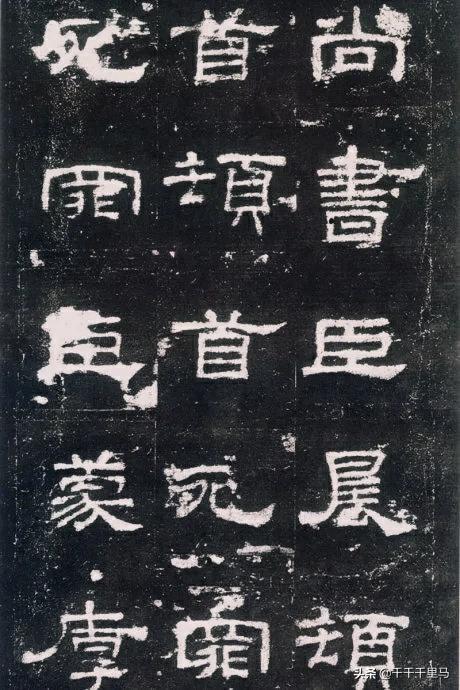 尚書臣晨頓
首頓首死罪
死罪臣蒙厚
头条 @千千千里马